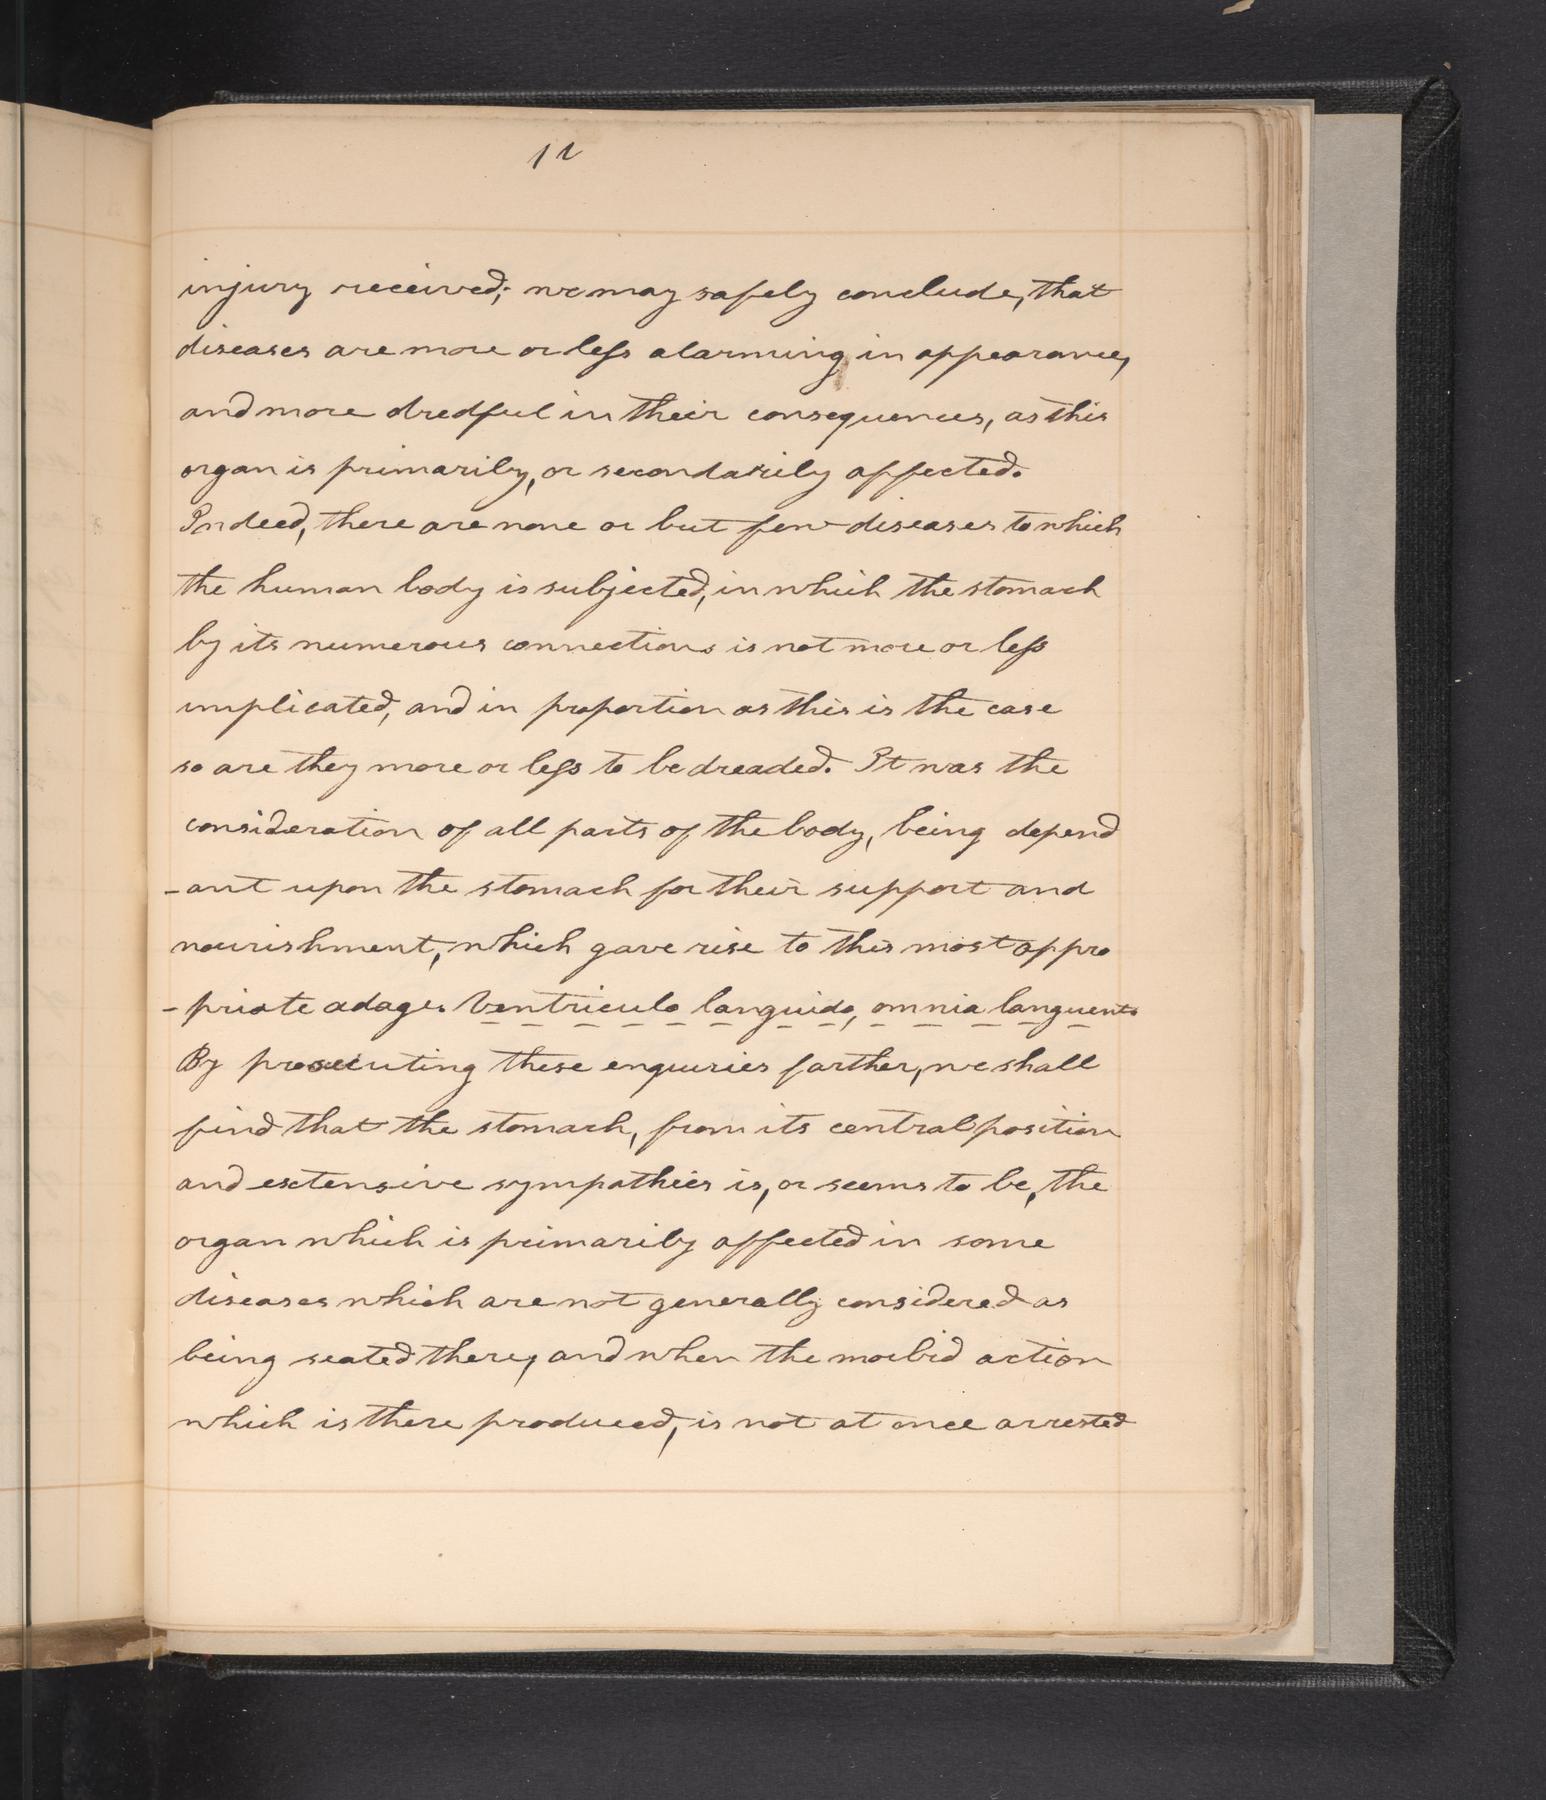 12
injury received; we may safely conclude, that
diseases are more or less alarming in appearance,
and more dredful in their consequences, as this
organ is primarily, or secondarily affected.
Indeed, there are none or but few diseases to which
the human body is subjected, in which the stomach
by its numerous connections is not more or less
implicated, and in proportion as this is the case
so are they more or less to be dreaded. It was the
consideration of all parts of the body, being depend
-ant upon the stomach for their support and
nourishment, which gave rise to this most appro
-priate adage. Ventriculo languido, omnia languent.
By prosecuting these enquiries farther, we shall
find that the stomach, from its central position
and extensive sympathies is, or seems to be, the
organ which is primarily affected in some
diseases which are not generally considered as
being seated there, and when the morbid action
which is there produced, is not at once arrested